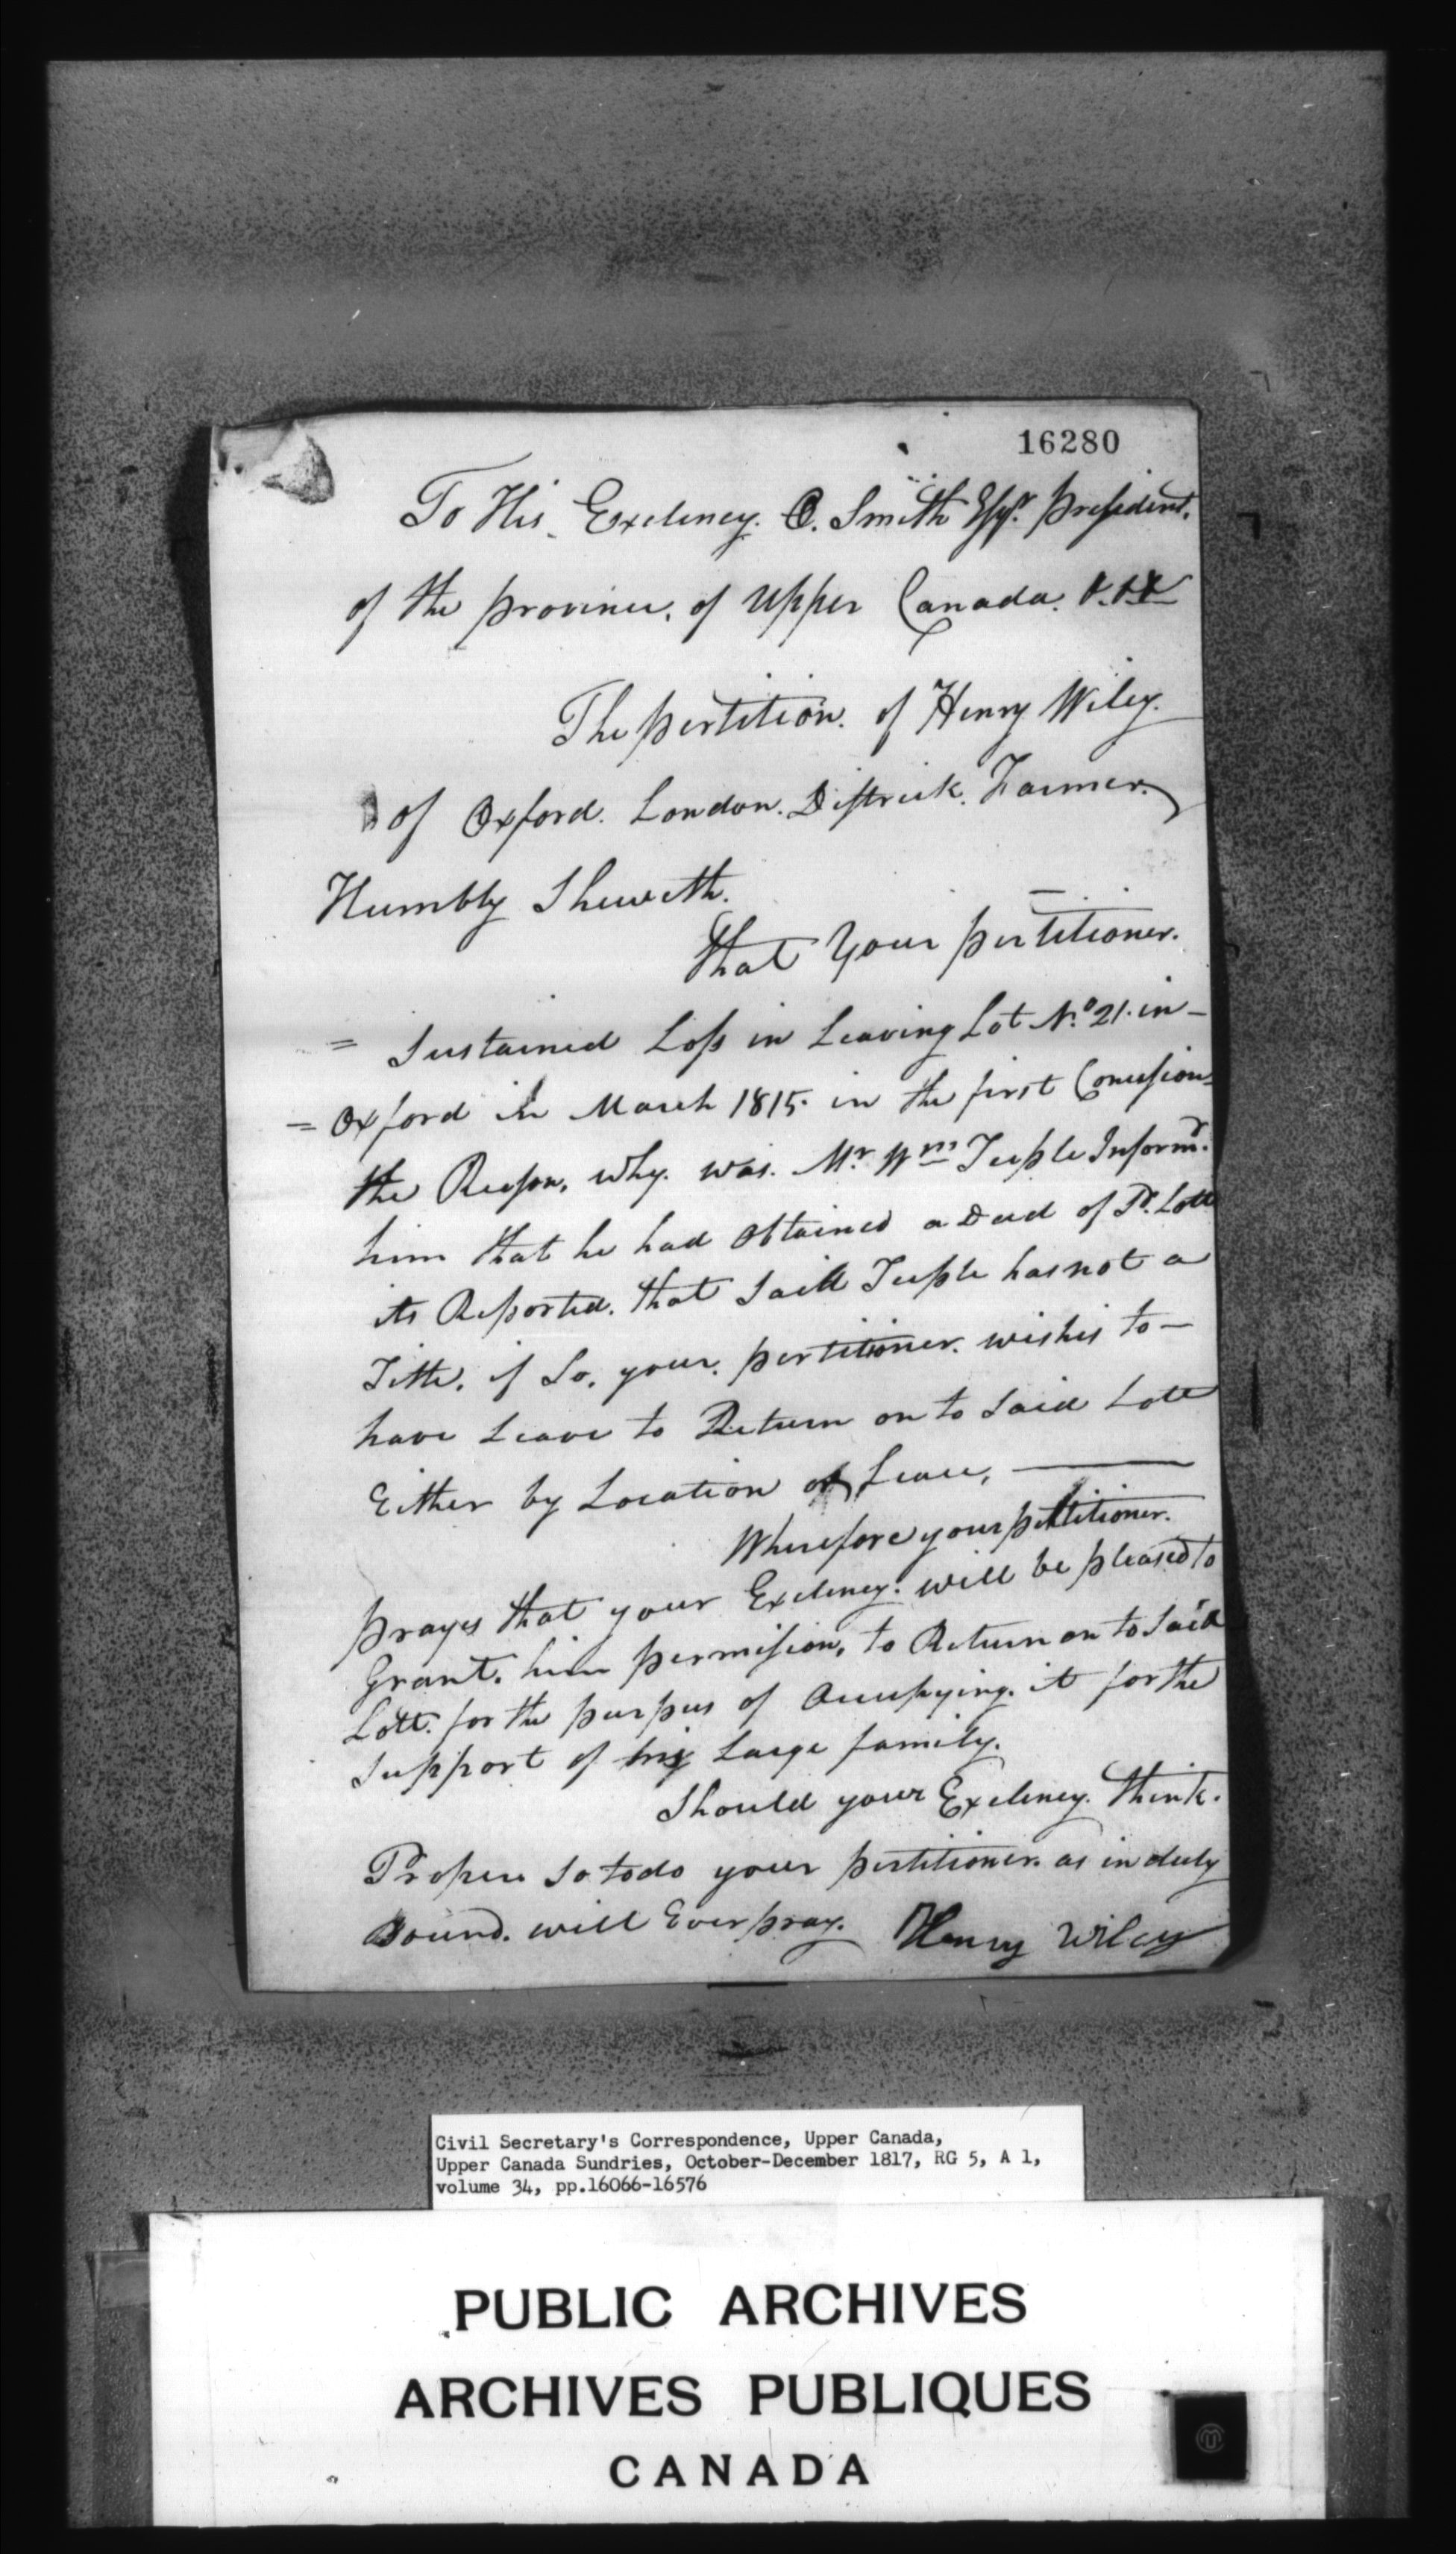 16280
To His Exelency. C. Smith Esqr. president.
of the province. of Upper Canada. &.&.&
The pertition. of Henry Wiley.
of Oxford. London. Districk. Farmer.
Humbly Sheweth.
that Your pertitioner.
= Sustained Loss in Leaving Lot No. 21. in -
= Oxford in March 1815. in the first Concession=
the Reason, why. was. Mr. Wm Teeple Informd.
him that he had obtained a Deed of Sd. Lott
its Reported. that Said Teeple has not a
Title. if So. your. pertitioner. wishes to -
have Leave to Return on to Said Lott
Either by Location or Leace,
Wherefore your pertitioner.
prayes that your Exelency. will be pleased to
Grant. him permission, to Return on to Said
Lott. for the purpus of Occupying. it for the
Support of his Large family.
Should your Exelency. think.
Proper So to do your pertitioner. as in duty
Bound. will Ever pray. Henry Wiley
Civil Secretary's Correspondence, Upper Canada,
Upper Canada Sundries, October-December 1817, RG 5, A 1,
volume 34, pp.16066-16576
PUBLIC ARCHIVES
ARCHIVES PUBLIQUES
CANADA